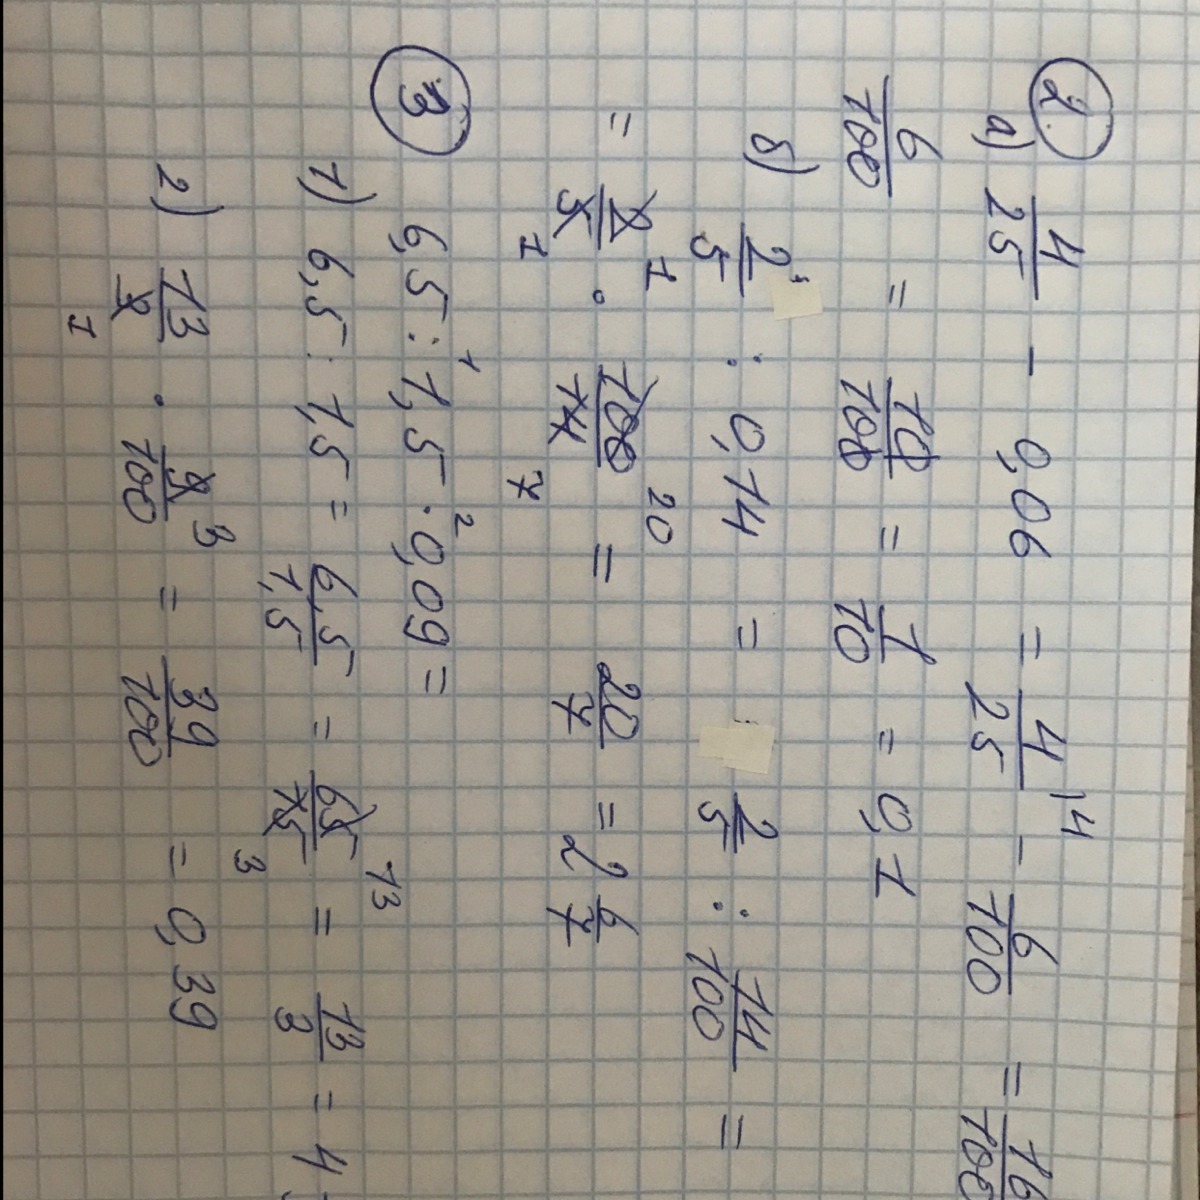 2.
а) 4/25 - 0,06 = 4/25 |4 - 6/100 = 16/100
6/100 = 10/100 = 1/10 = 0,1
б) 2/5 : 0,14 = 2/5 : 14/100 =
= 2/5 1 1 · 100/14 20 7 = 20/7 = 2 6/7
3 6,5 : 1,5 · 0,09 =
1 2
1) 6,5 : 1,5 = 6,5/1,5 = 65/15 13 3 = 13/3 = 4
2) 13/3 1 · 9/100 3 = 39/100 = 0,39